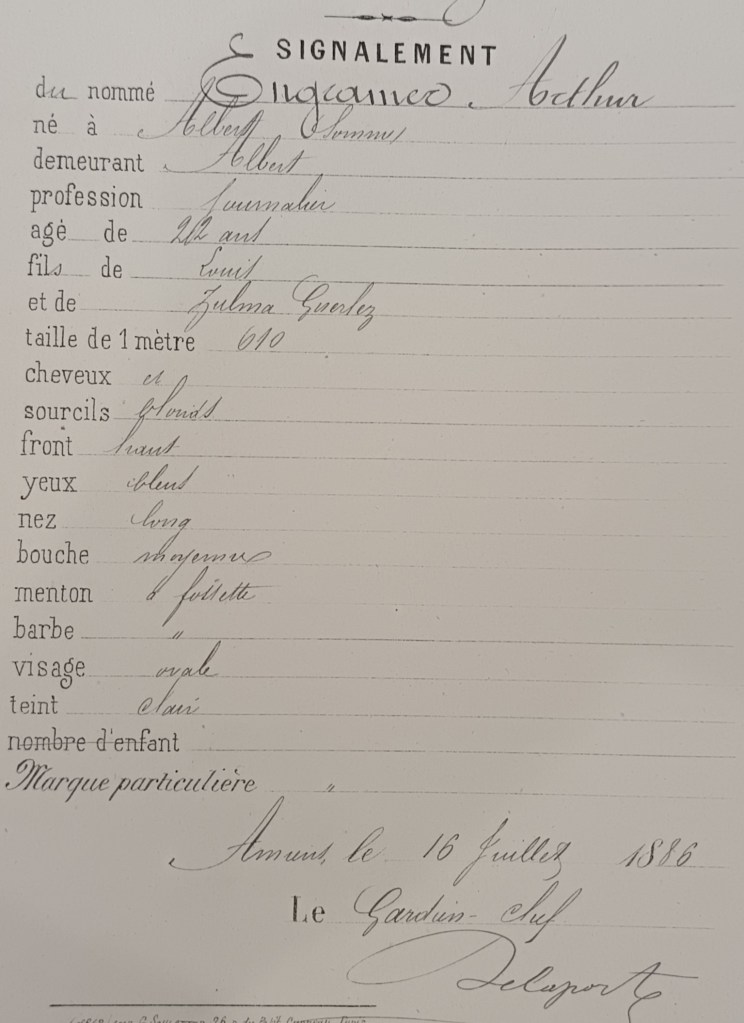 SIGNALEMENT
du nommé Engramer, Arthur
né à Albert (Somme)
demeurant Albert
profession journalier
agé de 22 ans
fils de Louis
et de Zulma Guerlez
taille de 1 mètre 610
cheveux et
sourcils blonds
front haut
yeux bleus
nez long
bouche moyenne
menton à fossette
barbe "
visage ovale
teint clair
nombre d'enfant
Marque particulière "
Amiens, le 16 Juillet 1886
Le Gardien-chef
Delaporte